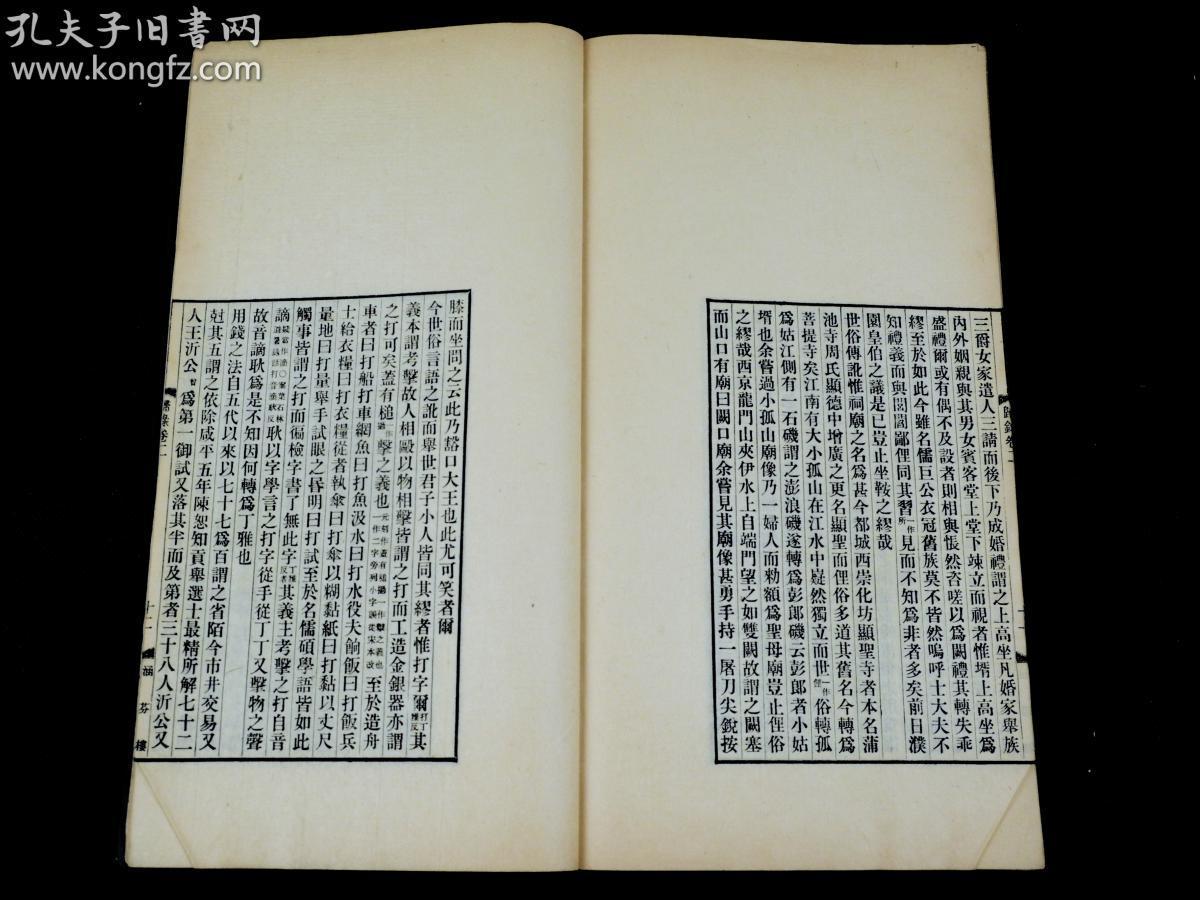 孔夫子旧书网
www.kongfz.com
三爵女家遣人三請而後下乃成婚禮謂之上高坐凡婚家舉族
內外姻親與其男女賓客堂上堂下竦立而視者惟壻上高坐爲
盛禮爾或有偶不及設者則相與悵然咨嗟以爲闕禮其轉失乖
繆至於如此今雖名儒巨公衣冠舊族莫不皆然嗚呼士大夫不
知禮義而與閭閻鄙俚同其習一作所見而不知爲非者多矣前日濮
園皇伯之議是已豈止坐鞍之繆哉
世俗傳訛惟祠廟之名爲甚今都城西崇化坊顯聖寺者本名蒲
池寺周氏顯德中增廣之更名顯聖而俚俗多道其舊名今轉爲
菩提寺矣江南有大小孤山在江水中嶷然獨立而世一作俚俗轉孤
爲姑江側有一石磯謂之澎浪磯遂轉爲彭郎磯云彭郎者小姑
壻也余嘗過小孤山廟像乃一婦人而勑額爲聖母廟豈止俚俗
之繆哉西京龍門山夾伊水上自端門望之如雙闕故謂之闕塞
而山口有廟曰闕口廟余嘗見其廟像甚勇手持一屠刀尖銳按
歸錄卷二
膝而坐問之云此乃豁口大王也此尤可笑者爾
今世俗言語之訛而舉世君子小人皆同其繆者惟打字爾打丁雅反其
義本謂考擊故人相毆以物相擊皆謂之打而工造金銀器亦謂
之打可矣蓋有槌一作撾擊之義也元刻作蓋有槌撾一作擊之義也一作二字旁列小字誤從宋本改至於造舟
車者曰打船打車網魚曰打魚汲水曰打水役夫餉飯曰打飯兵
士給衣糧曰打衣糧從者執傘曰打傘以糊黏紙曰打黏以丈尺
量地曰打量舉手試眼之昏明曰打試至於名儒碩學語皆如此
觸事皆謂之打而徧檢字書了無此字丁雅反者其義主考擊之打自音
謫疑當作滴○案葉石林避暑錄話打音滴耿反耿以字學言之打字從手從丁丁又擊物之聲
故音謫耿爲是不知因何轉爲丁雅也
用錢之法自五代以來以七十七爲百謂之省陌今市井交易又
尅其五謂之依除咸平五年陳恕知貢舉選士最精所解七十二
人王沂公曾爲第一御試又落其半而及第者三十八人沂公又
歸錄卷二
十二
涵芬樓